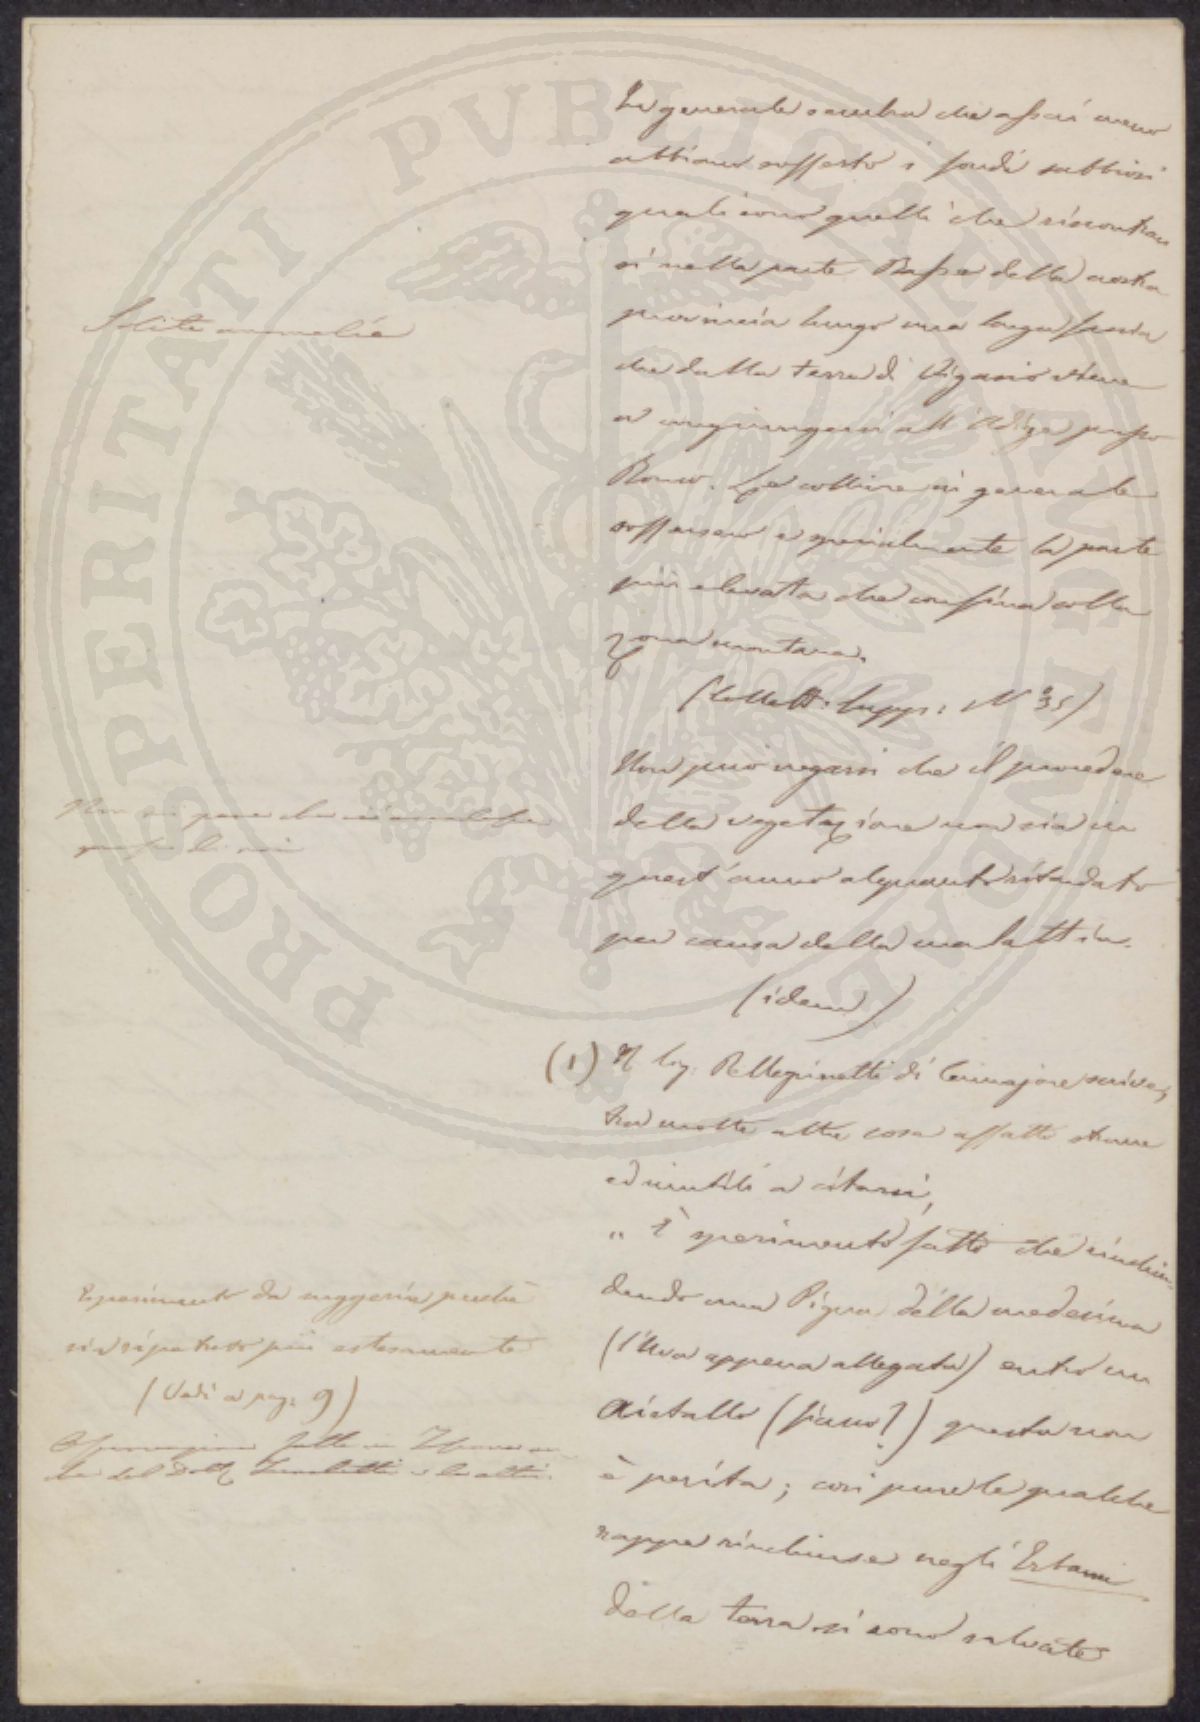 In generale sembra che assai meno
abbiano sofferto i fondi sabbiosi
quali sono quelli che riscontran
si nella parte Bassa della nostra
provincia lungo una lunga fascia
che dalla terra di Vigasio viene
a congiungersi all'Adige presso
Ronco. Le colline in generale
soffersero e specialmente la parte
più elevata che confina colla
zona montana.
Solite anomalie
(Collett: Supp: N° 35)
Non può negarsi che il procedere
della vegetazione non sia in
quest'anno alquanto ritardato
per causa della malattia.
Non mi pare che
(idem)
(1) Il Sig. Pellegrinetti di Camajore scrive,
tra molte altre cose affatto strane
ed inutili a citarsi,
" È sperimento fatto che rinchiu-
dendo una Pigna della medesima
(l'Uva appena allegata) entro un
Cristallo (fiano?) questa non
è perita; così pure le qualche
rappe rinchiuse negli Erbami
della terra si sono salvate
Esperimento da suggerire perchè
sia ripetuto più estesamente
(Vedi a pag: 9)
Osservazioni fatte in
del Dott. e da altri.
PVBLICAE
PROSPERITATI